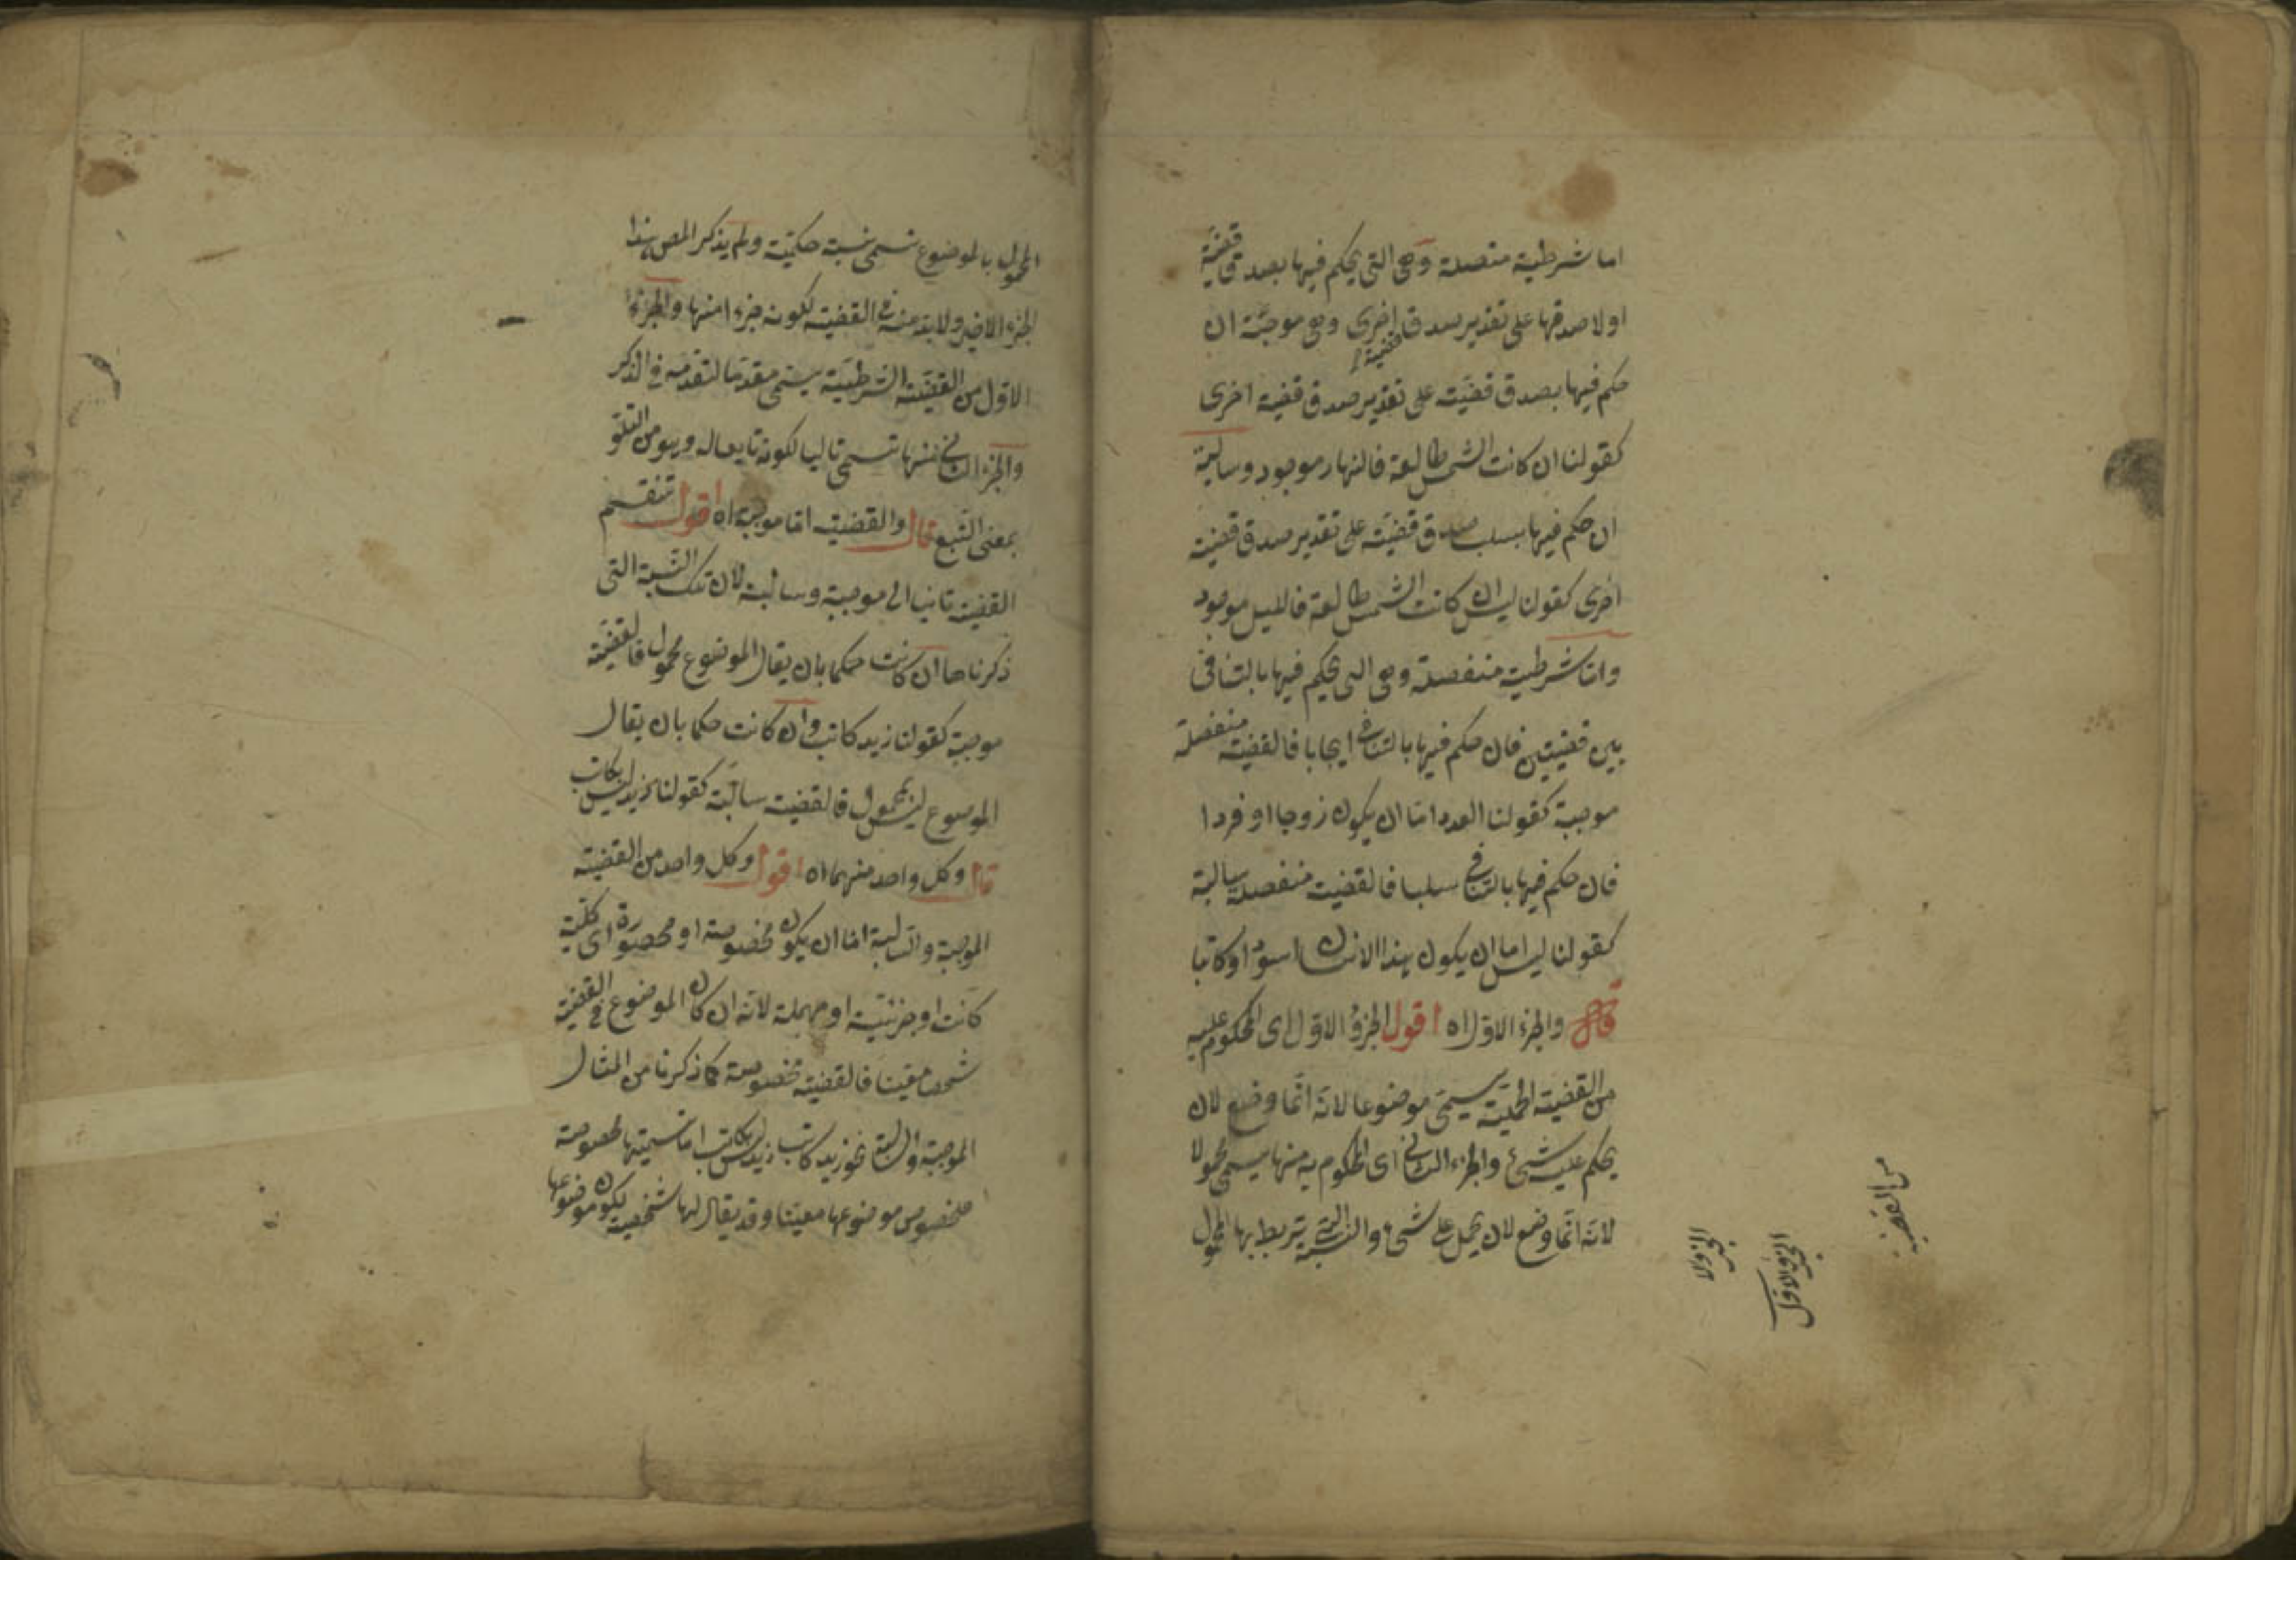 اما شرطية متصلة وهى التى يحكم فيها بصدق قضية
اولا صدقها على تقدير صدق اخرى وهى موجبة ان
قضية
حكم فيها بصدق قضية على تقدير صدق قضية اخرى
كقولنا ان كانت الشمس طالعة فالنهار موجود وسالبة
ان حكم فيها بسلب صدق قضية على تقدير صدق قضية
اخرى كقولنا ليس ان كانت الشمس طالعة فالليل موجود
واما شرطية منفصلة وهى التى يحكم فيها بالتنافى
بين قضيتين فان حكم فيها بالتنافى ايجابا فالقضية منفصلة
موجبة كقولنا العدد اما ان يكون زوجا او فردا
فان حكم فيها بالتنافى سلبا فالقضية منفصلة سالبة
كقولنا ليس اما ان يكون هذا الانسان اسود او كاتبا
قال والجزء الاول اه اقول الجزؤ الاول اى المحكوم عليه
من القضية الحملية يسمى موضوعا لانه انما وضع لان
يحكم عليه شئ والجزء الثانى اى المحكوم به منها يسمى محمولا
لانه انما وضع لان يحمل على شئ والنسبة التى يرتبط بها المحمول
من القضية
الجزؤ الاول
المحمول بالموضوع تسمى نسبة حكمية ولم يذكر المص هذا
الجزء الاخير ولا بد منه فى القضية لكونه جزء امنها والجزء
الاول من القضية الشرطية يسمى مقدما لتقدمه فى الذكر
والجزء الثانى منها تسمى تاليا لكونه تابعا له وهو من التلو
بمعنى التبع قال والقضية اما موجبة اه اقول تنقسم
القضية ثانيا الى موجبة وسالبة لان تلك النسبة التى
ذكرناها ان كانت حكما بان يقال الموضوع محمول فالقضية
موجبة كقولنا زيد كاتب وان كانت حكما بان يقال
الموضوع ليس بمحمول فالقضية سالبة كقولنا زيد ليس بكاتب
قال وكل واحد منهما اه اقول وكل واحد من القضية
الموجبة والسالبة اما ان يكون مخصوصة او محصورة اى كلية
كانت او جزئية او مهملة لانه ان كان الموضوع فى القضية
شخصا معينا فالقضية مخصوصة كما ذكرنا من المثال
الموجبة والسالبة نحو زيد كاتب زيد ليس بكاتب اما تسميتها مخصوصة
فلخصوص موضوعها معينا وقد يقال لها شخصية لكون موضوعها